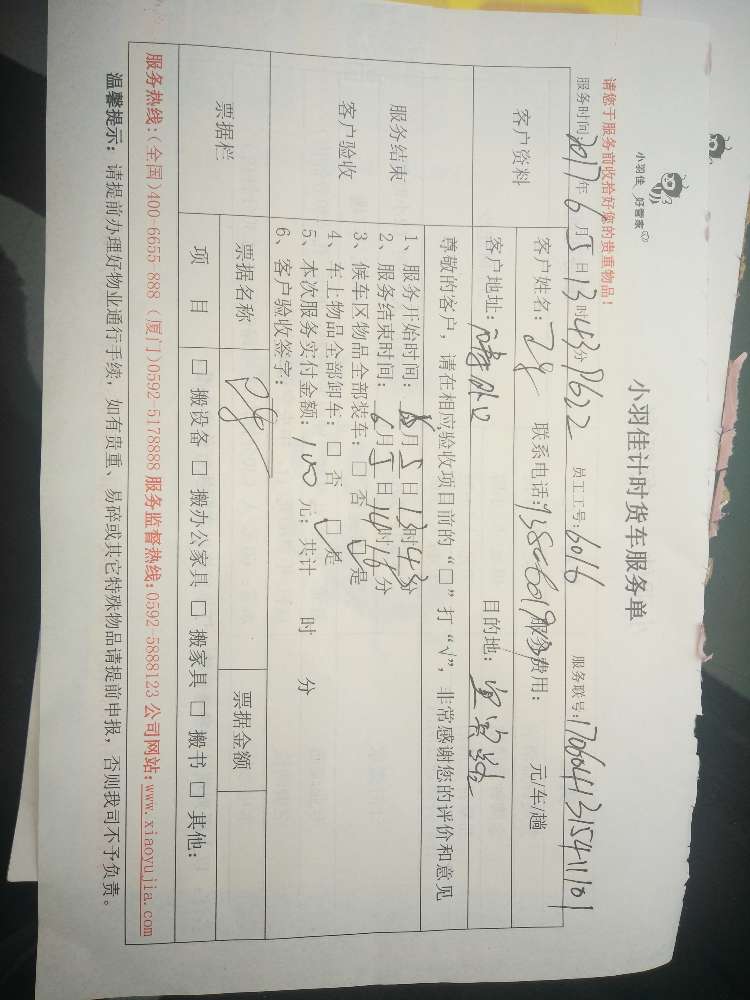 小羽佳 好管家
小羽佳计时货车服务单
请您于服务前收拾好您的贵重物品！
服务时间：2017年6月5日13时43分 员工工号：6016 服务联号：170604131541101
客户资料
客户姓名： 联系电话： 服务费用： 元/车/趟
客户地址： 目的地：
服务结束
客户验收
尊敬的客户，请在相应验收项目前的“□”打“√”，非常感谢您的评价和意见
1、服务开始时间：6月5日13时43分
2、服务结束时间：6月5日14时16分
3、候车区物品全部装车：□ 否 □ 是
4、车上物品全部卸车：□ 否 □ 是
5、本次服务实付金额：100元；共计 时 分
6、客户验收签字：
票据栏
票据名称 票据金额
项 目 □ 搬设备 □ 搬办公家具 □ 搬家具 □ 搬书 □ 其他：
服务热线：(全国)400-6655 888（厦门)0592-5178888 服务监督热线：0592-5888123 公司网站：www.xiaoyujia.com
温馨提示：请提前办理好物业通行手续，如有贵重、易碎或其它特殊物品请提前申报，否则我司不予负责。